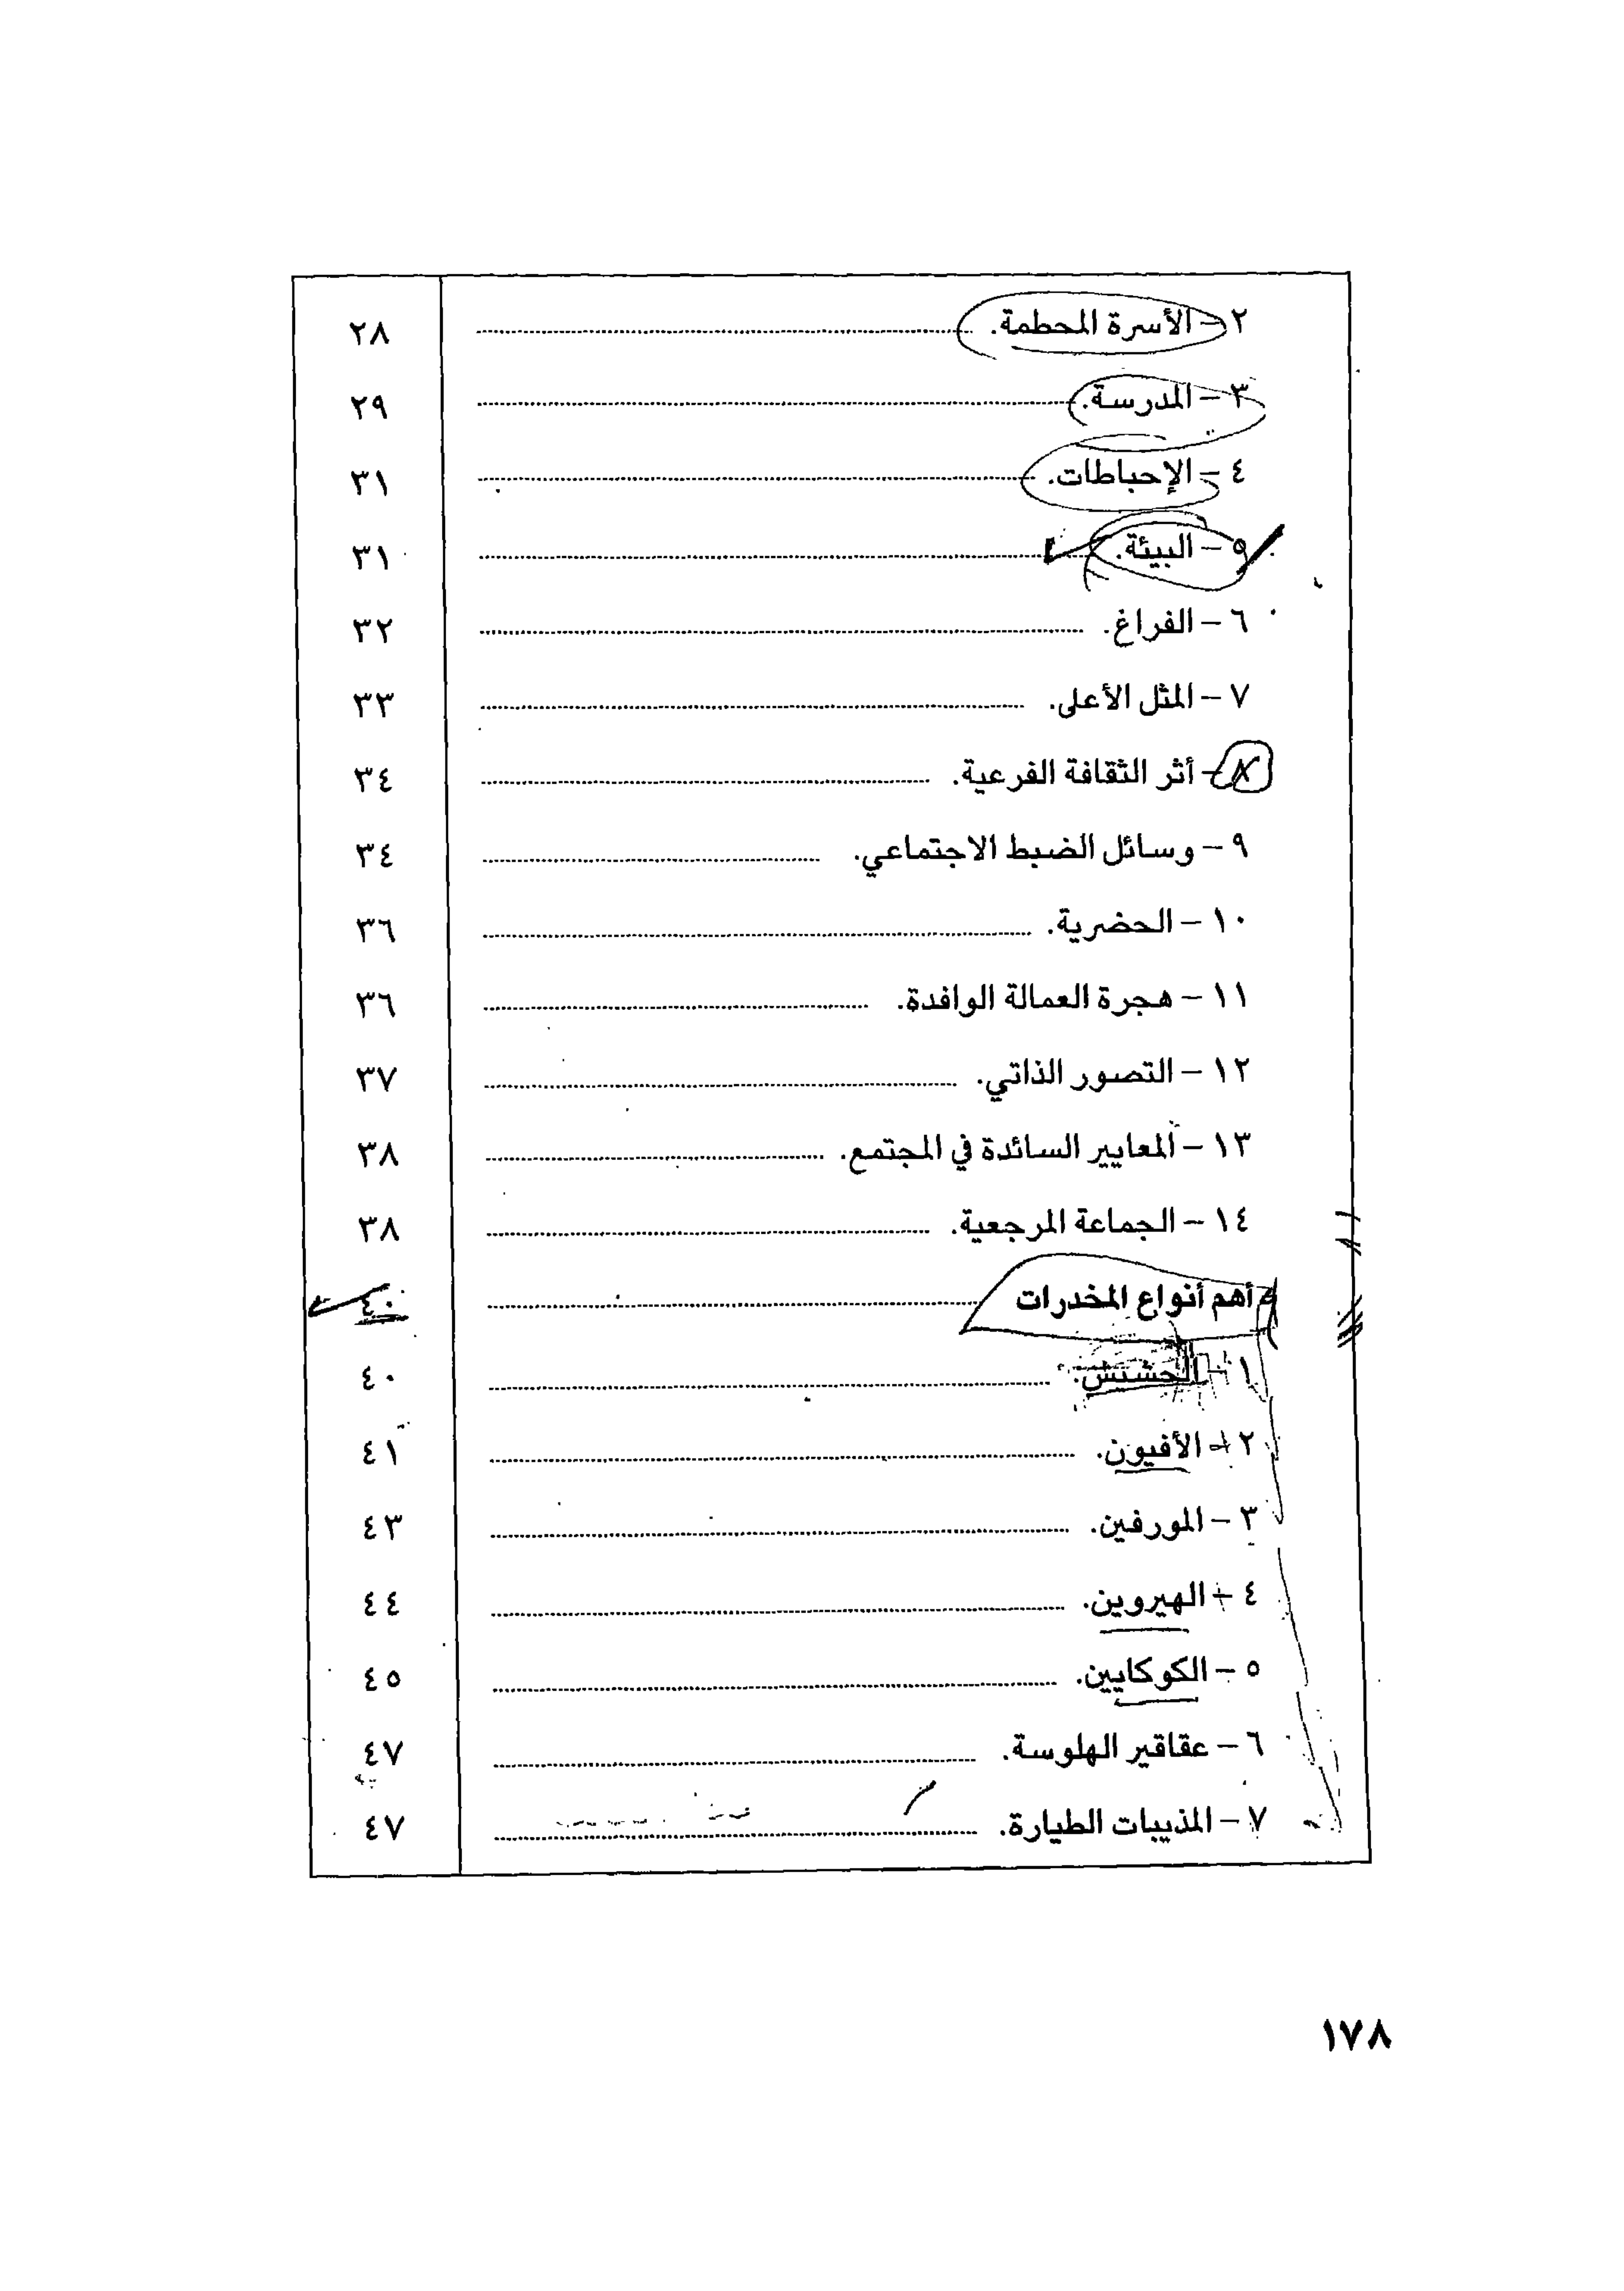 ٢ – الأسرة المحطمة. ٢٨
٣ – المدرسة. ٢٩
٤ – الإحباطات. ٣١
٥ – البيئة. ٣١
٦ – الفراغ. ٣٢
٧ – المثل الأعلى. ٣٣
٨ – أثر الثقافة الفرعية. ٣٤
٩ – وسائل الضبط الاجتماعي. ٣٤
١٠ – الحضرية. ٣٦
١١ – هجرة العمالة الوافدة. ٣٦
١٢ – التصور الذاتي. ٣٧
١٣ – المعايير السائدة في المجتمع. ٣٨
١٤ – الجماعة المرجعية. ٣٨
أهم أنواع المخدرات ٤٠
١ – الحشيش. ٤٠
٢ – الأفيون. ٤١
٣ – المورفين. ٤٣
٤ – الهيروين. ٤٤
٥ – الكوكايين. ٤٥
٦ – عقاقير الهلوسة. ٤٧
٧ – المذيبات الطيارة. ٤٧
١٧٨